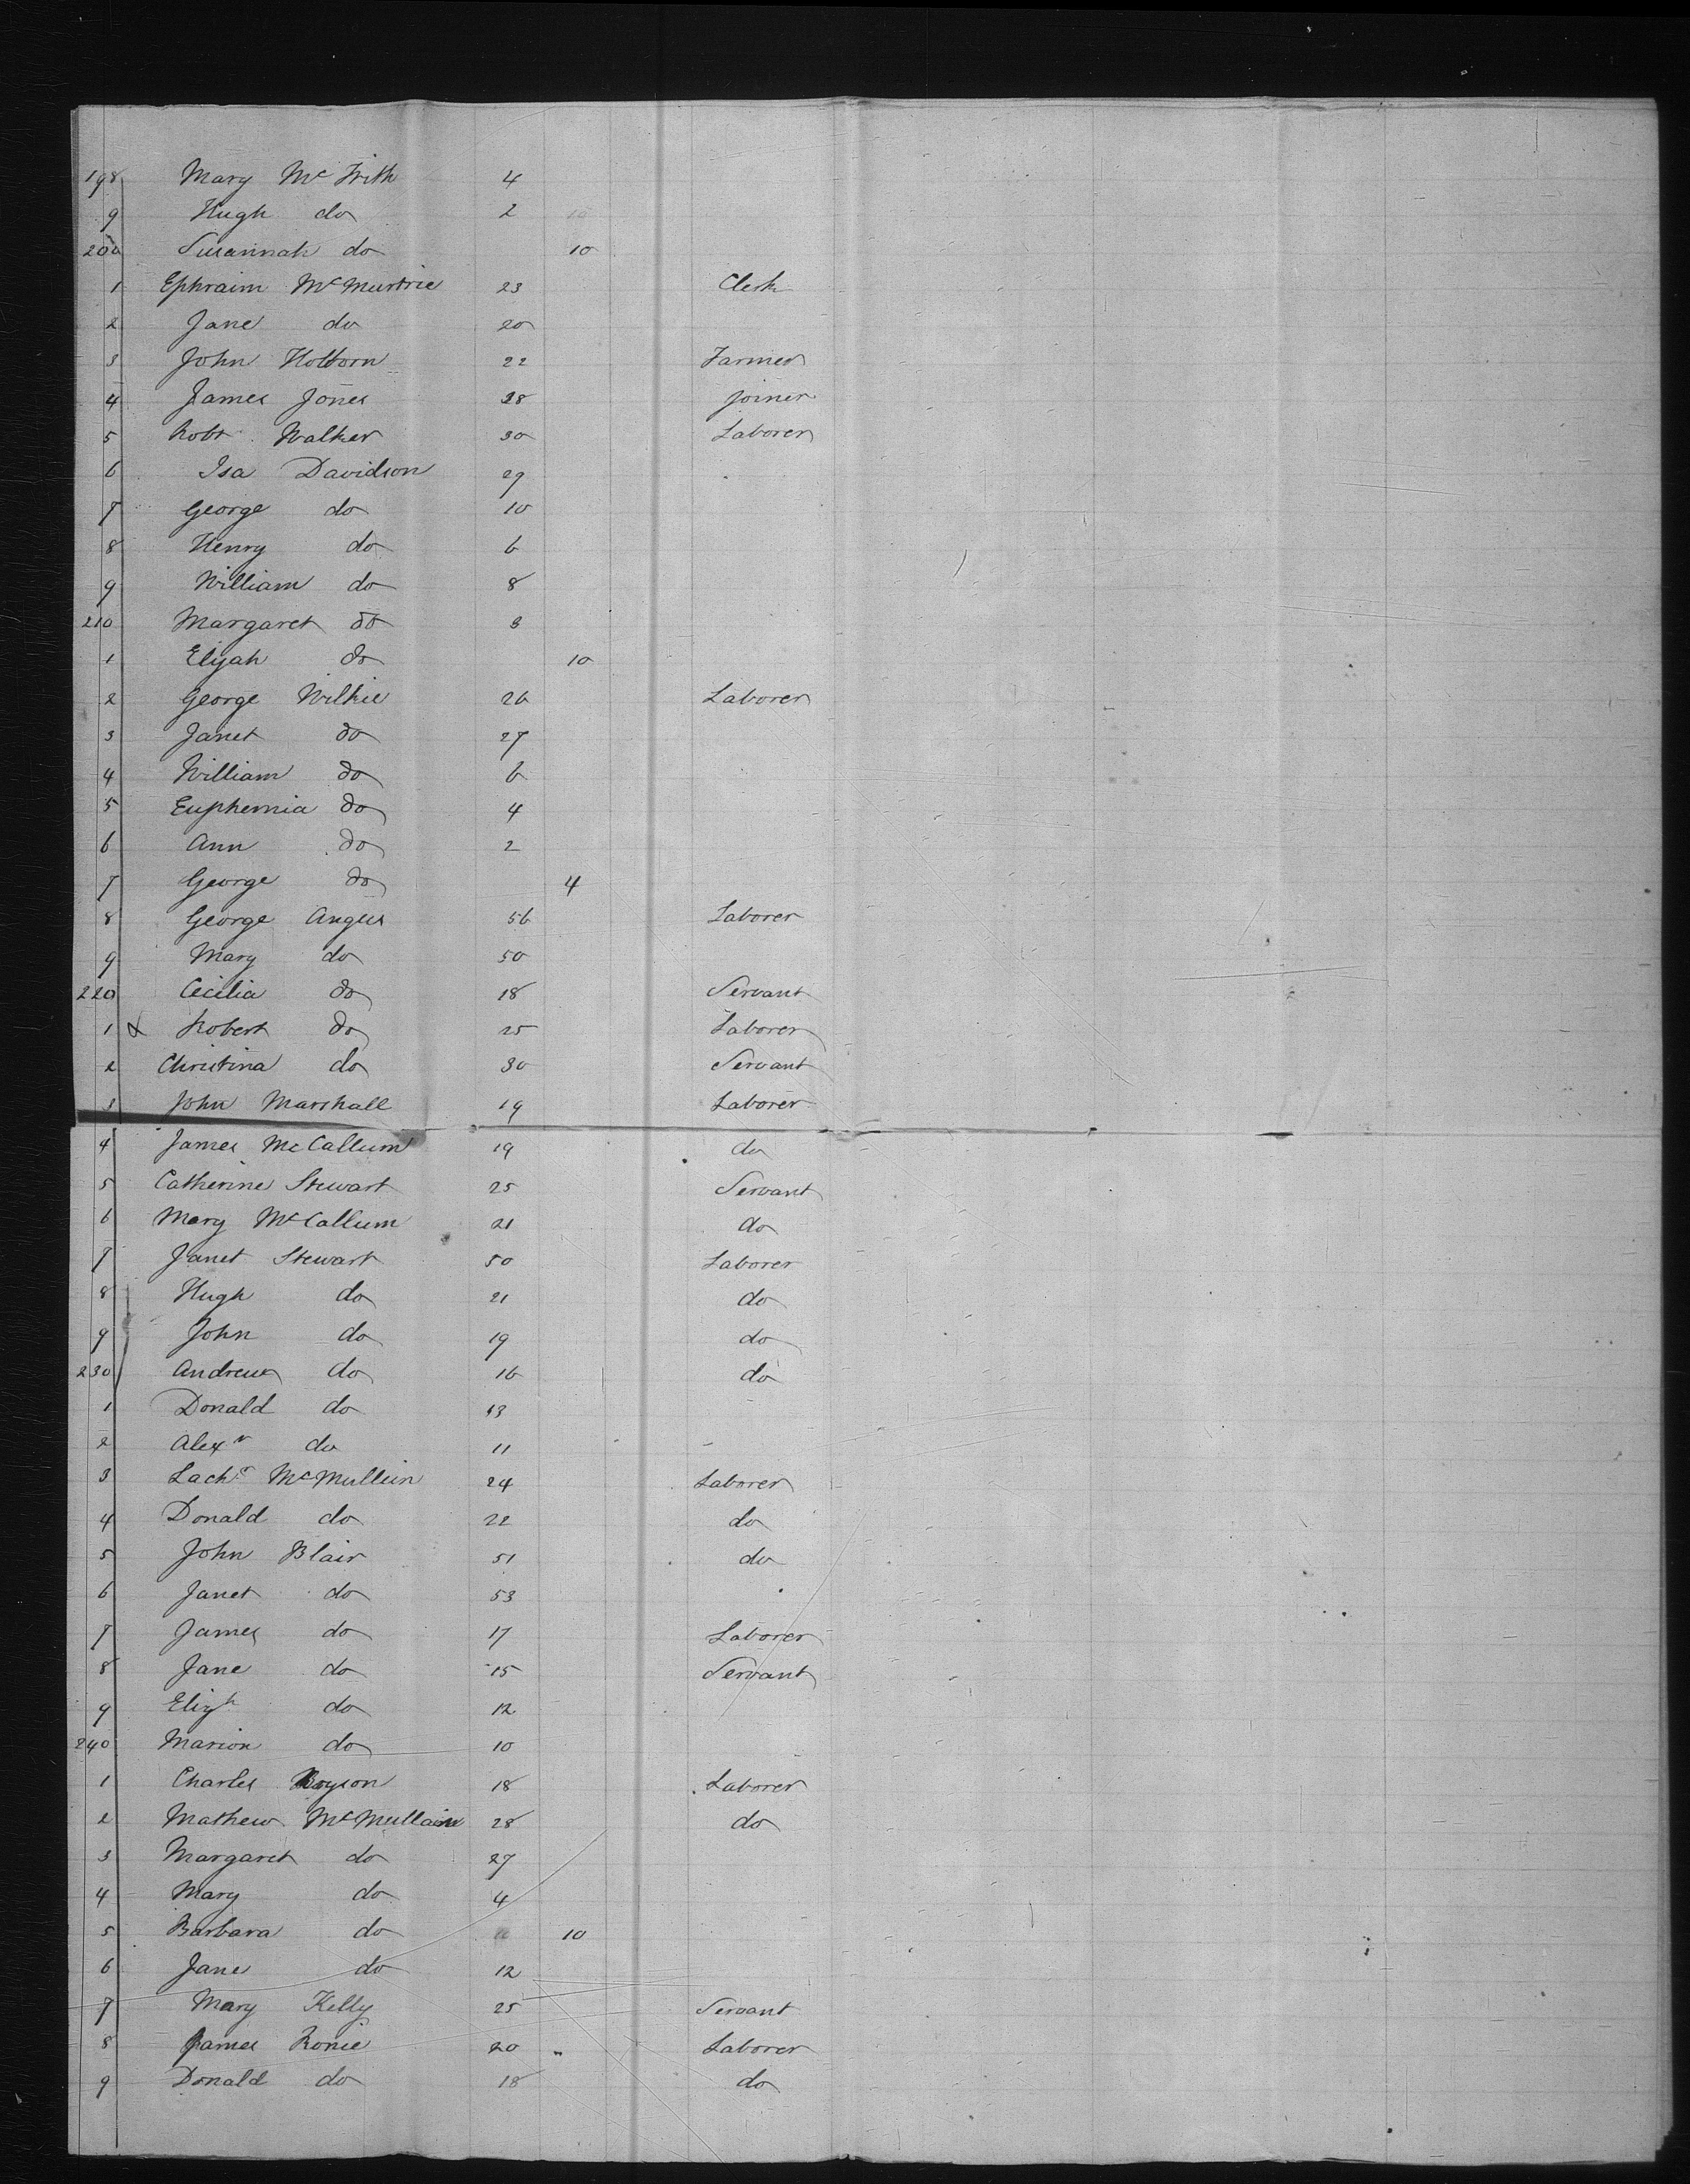 198 Mary Mc Frith 4
9 Hugh do 2
200 Susannah do 10
1 Ephraim McMurtrie 23 Clerk
2 Jane do 20
3 John Holborn 22 Farmer
4 James Jones 28 joiner
5 Robt Walker 30 Laborer
6 Isa Davidson 29
7 George do 10
8 Henry do 6
9 William do 8
210 Margaret do 3
1 Elijah do 10
2 George Wilkie 26 Laborer
3 Janet do 27
4 William do 6
5 Euphemia do 4
6 Ann do 2
7 George do 4
8 George Angus 56 Laborer
9 Mary do 50
220 Cecilia do 18 Servant
1 Robert do 25 Laborer
2 Christina do 30 Servant
3 John Marshall 19 Laborer
4 James McCallum 19 do
5 Catherine Stewart 25 Servant
6 Mary McCallum 21 do
7 Janet Stewart 50 Laborer
8 Hugh do 21 do
9 John do 19 do
230 Andrew do 16 do
1 Donald do 13
2 Alexr do 11
3 Lachn McMullin 24 Laborer
4 Donald do 22 do
5 John Blair 51 do
6 Janet do 53
7 James do 17 Laborer
8 Jane do 15 Servant
9 Elizh do 12
240 Marion do 10
1 Charles 18 Laborer
2 Mathew McMullain 28 do
3 Margaret do 27
4 Mary do 4
5 Barbara do 10
6 Jane do 12
7 Mary Kelly 25 Servant
8 James Ronie 20 " Laborer
9 Donald do 18 do